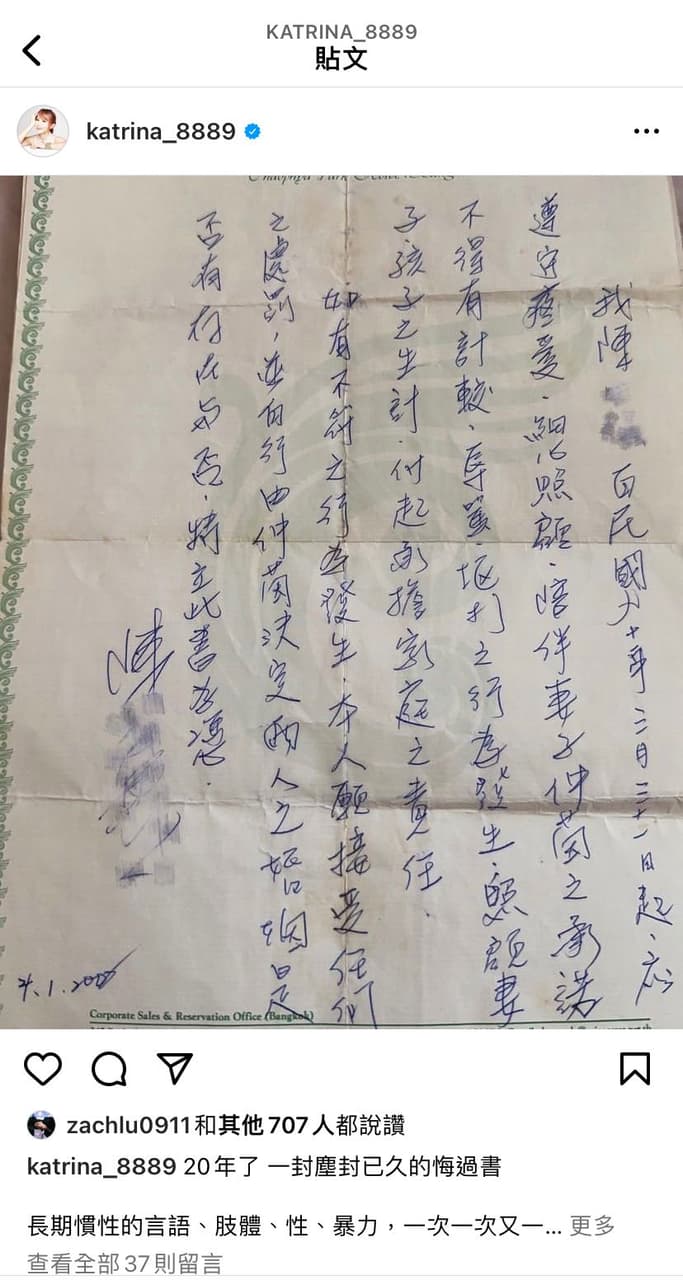 KATRINA_8889
貼文
katrina_8889
我陳 自民國九十年三月三十一日起、應
遵守疼愛、細心照顧、陪伴妻子仲茵之承諾
不得有計較、辱罵、毆打之行為發生、照顧妻
子孩子之生計、付起承擔家庭之責任、
如有不符之行為發生、本人願接受任何
之處罰，並自行由仲茵決定兩人之婚姻是
否有存在与否、特立此書為憑、
陳
Corporate Sales & Reservation Office (Bangkok)
zachlu0911和其他 707 人都說讚
katrina_8889 20年了 一封塵封已久的悔過書
長期慣性的言語、肢體、性、暴力，一次一次又一... 更多
查看全部 37 則留言